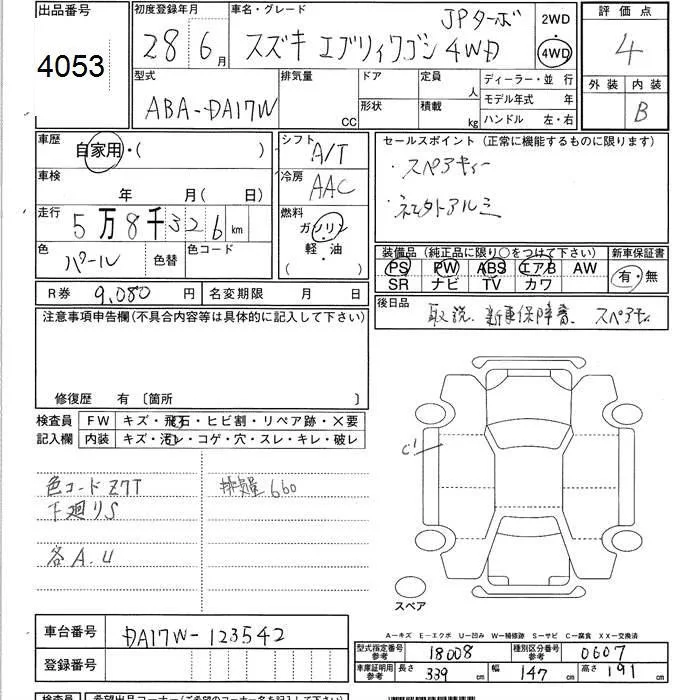 出品番号
4053
初度登録年月
28 6月
車名・グレード
JPターボ
スズキ エブリィワゴン 4WD
2WD
・
4WD
評価点
4
外装 内装
B
型式
ABA-DA17W
排気量
CC
ドア
形状
定員
人
積載
kg
ディーラー・並 行
モデル年式 年
ハンドル 左・右
車歴
自家用・( )
車検
年 月( 日)
走行
5万8千326km
色
パール
色替
色コード
シフト
A/T
冷房
AAC
燃料
ガソリン
軽・油
( )
セールスポイント(正常に機能するものに限ります)
・スペアキー
・社外アルミ
装備品(純正品に限り○をつけて下さい)
PS PW ABS エアB AW
SR ナビ TV カワ
新車保証書
有・無
R券 9,080円
名変期限 月 日
後日品
取説、新車保障書、スペアキー
注意事項申告欄(不具合内容等は具体的に記入して下さい)
修復歴 有〔箇所 〕
検査員
記入欄
FW キズ・飛石・ヒビ割・リペア跡・×要
内装 キズ・汚レ・コゲ・穴・スレ・キレ・破レ
色コードZ7T
下廻りS
各A.U
排気量660
C1
スペア
車台番号
DA17W-123542
登録番号
A-キズ E-エクボ U-凹み W-補修跡 S-サビ C-腐食 XX-交換済
型式指定番号
参考
18008
種別区分番号
参考
0607
車庫証明用
参考
長さ 339cm
幅 147cm
高さ 191cm
検査員
希望出品コーナー(ご希望のコーナー名をご記入下さい)